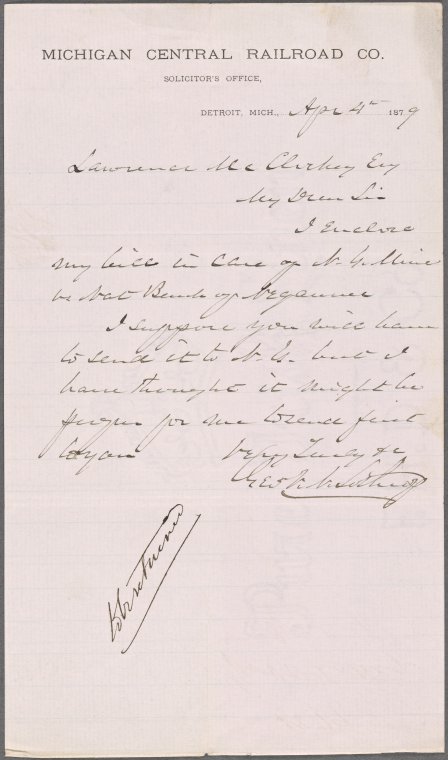 MICHIGAN CENTRAL RAILROAD CO.
SOLICITOR'S OFFICE,
DETROIT, MICH., Apr 4th 1879
Lawrence Mc Clurkey Esq
My Dear Sir
I Enclose
my bill in case of N. Y. Mine
vs Nat Bank of Negaunee
I suppose you will have
to send it to N. Y. but I
have thought it might be
proper for me to send first
to you Very Truly &c
Geo V. N. Lothrop
to be returned